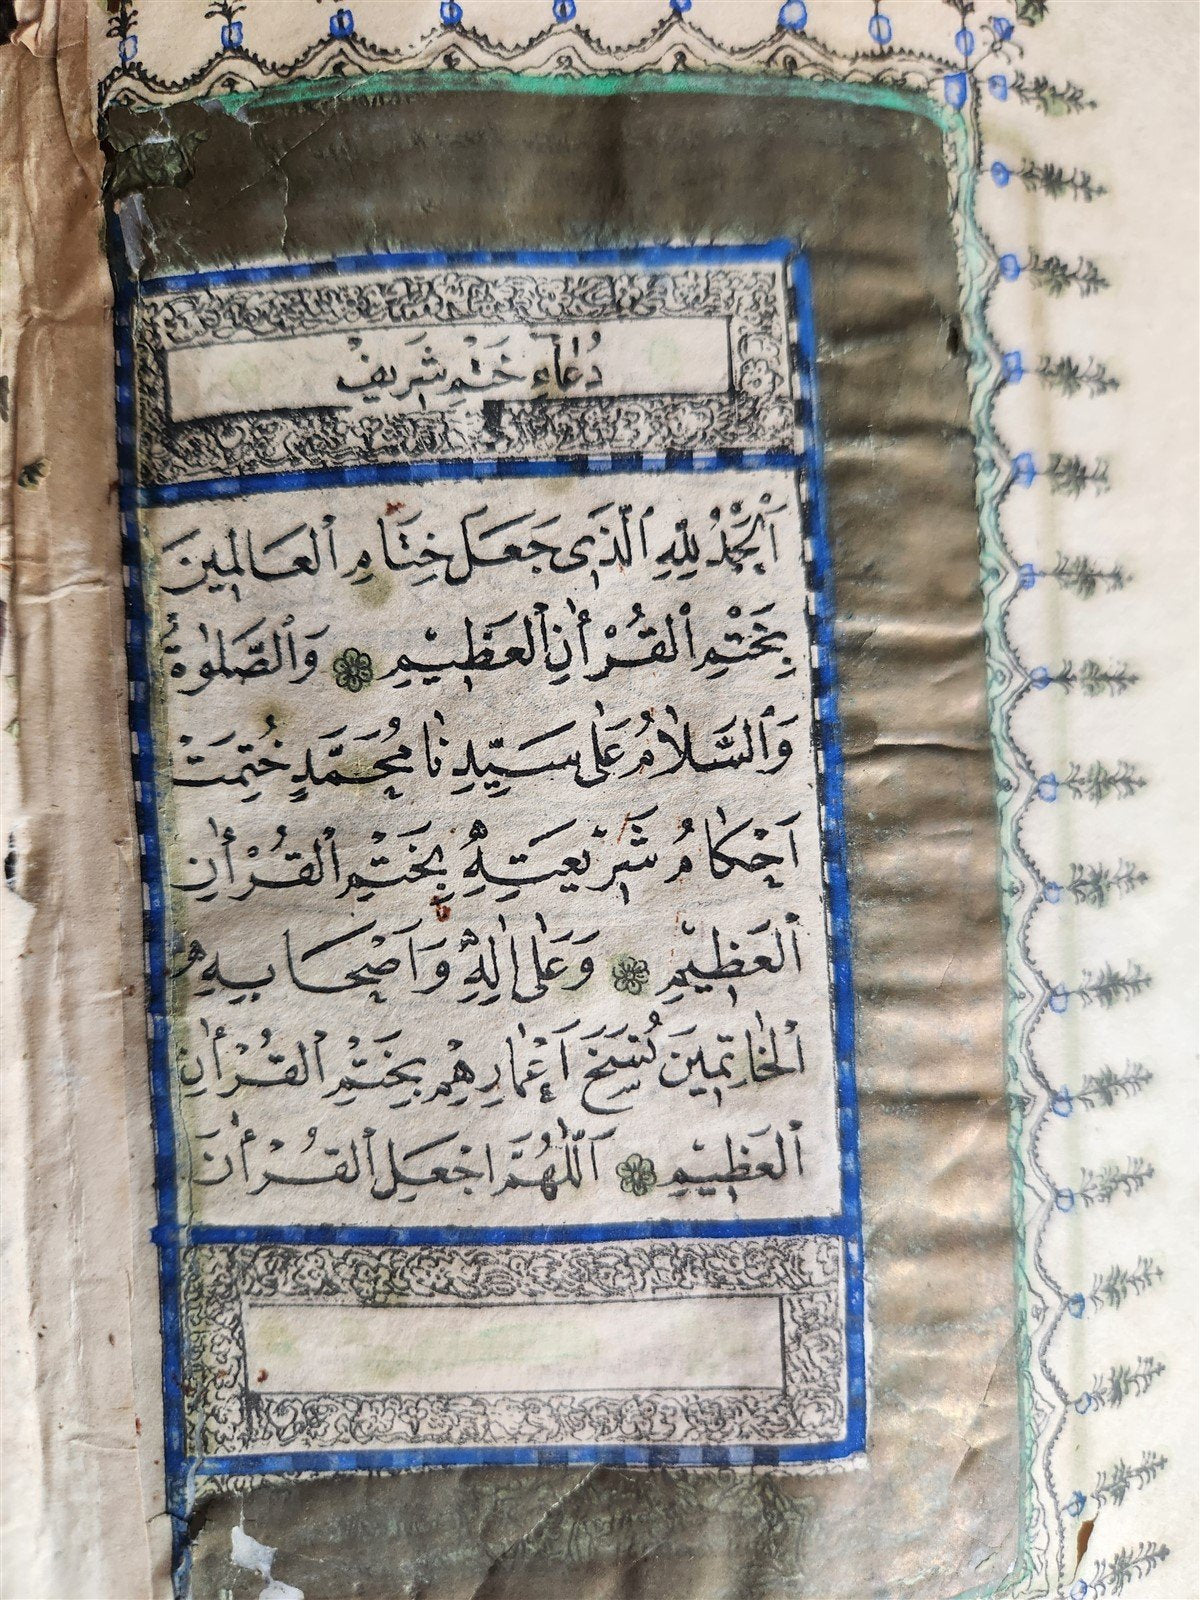 دُعَاۤءِ خَتْمِ شَرِيفْ
اَلْحَمْدُ لِلّٰهِ الَّذ۪ى جَعَلَ خِتَامِ الْعَالَمِينَ
بِخَتْمِ الْقُرْأٰنِ الْعَظ۪يمِ ۞ وَالصَّلٰوةُ
وَالسَّلَامُ عَلٰى سَيِّدِنَا مُحَمَّدٍ خُتِمَتْ
اَحْكَامُ شَر۪يعَتِه۪ بِخَتْمِ الْقُرْأٰنِ
الْعَظ۪يمِ ۞ وَعَلٰى اٰلِه۪ وَاَصْحَابِه۪
الْخَاتِم۪ينَ نُسَخَ اَعْمَارِهِمْ بِخَتْمِ الْقُرْأٰنِ
الْعَظ۪يمِ ۞ اَللّٰهُمَّ اجْعَلِ الْقُرْأٰنَ